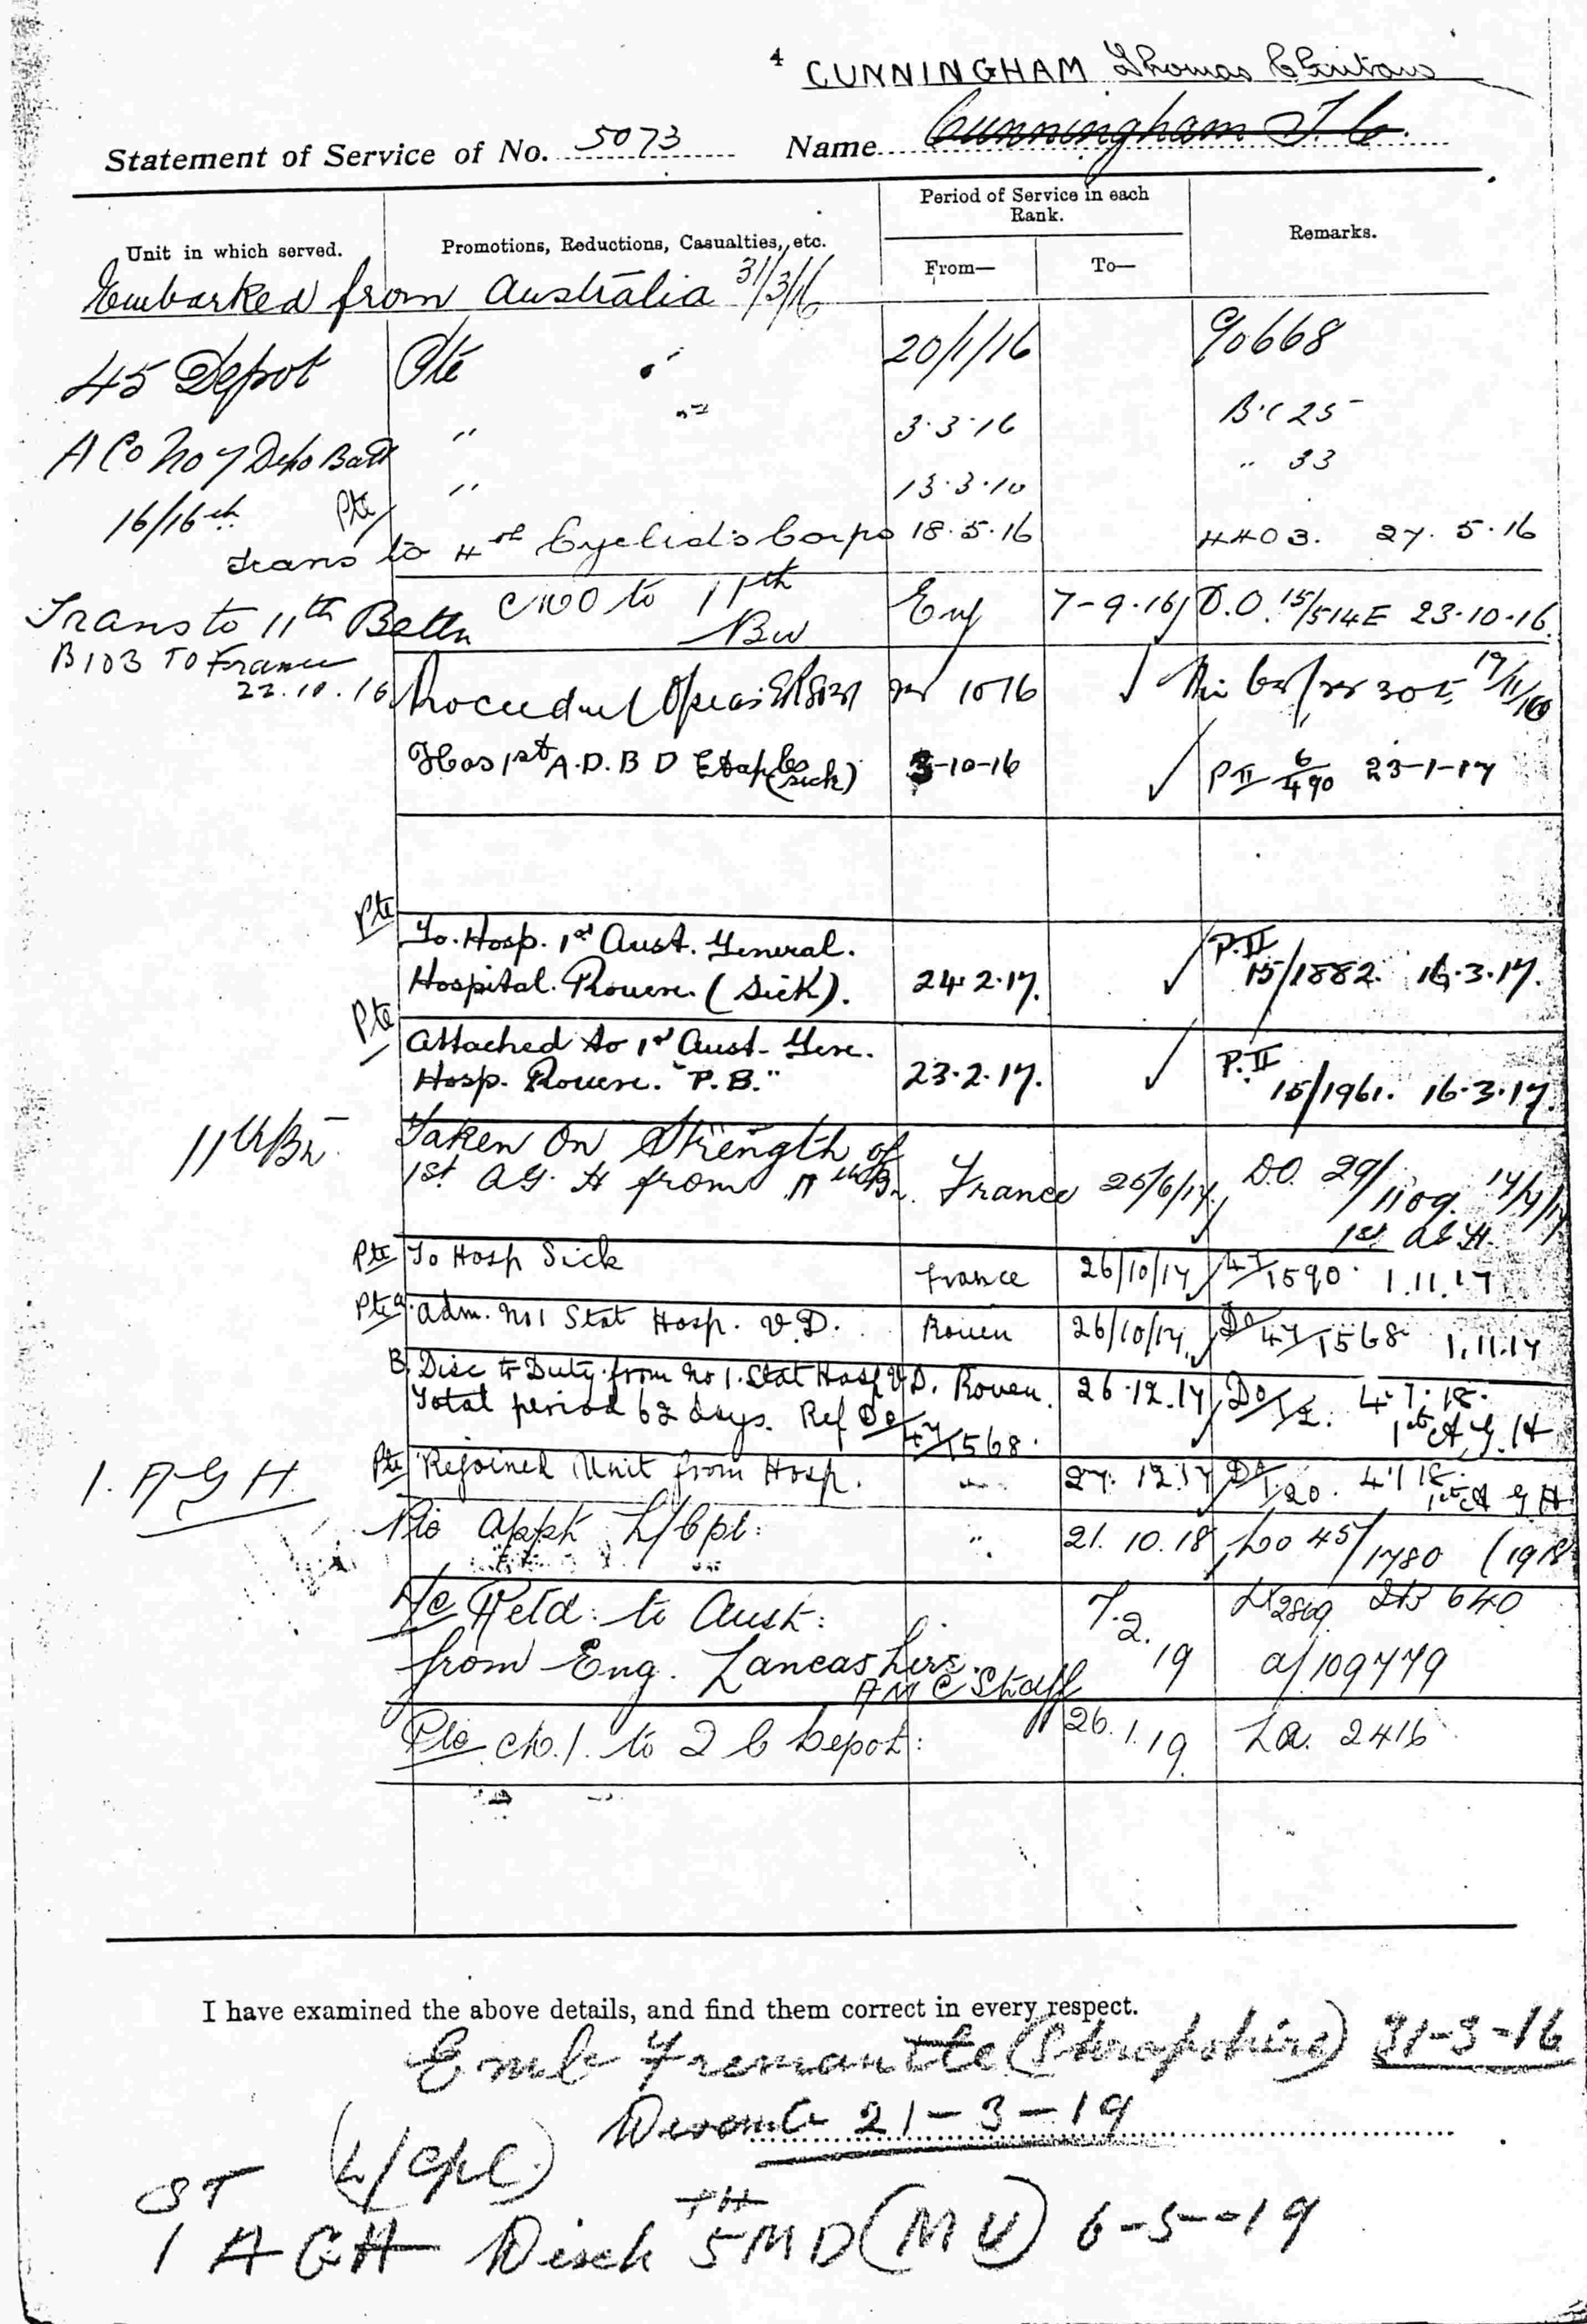 4 CUNNINGHAM Thomas
Statement of Service of No. 5073 Name Cunningham T. C.
Unit in which served. Promotions, Reductions, Casualties, etc. Period of Service in each Rank. Remarks.
From— To—
Embarked from Australia 31/3/16
45 Depot Pte " 20/1/16 90668
A Co No 7 Depo Batt " " 3.3.16 B.C 25
16/16th " 13.3.10 " 33
Pte
trans to 4th Cyclists Corps 18.5.16 4403. 27.5.16
Trans to 11th Battn to 11th Bn Eng 7-9-16 D.O. 15/514E 23-10-16
B103 To France
22.10.16
Hos 1st A.D.B D Etaples (sick) 3-10-16 ✓ P II 6/490 23-1-17
Pte To. Hosp. 1st Aust. General.
Hospital. Rouen. (Sick). 24.2.17. ✓ P.II 15/1882. 16.3.17.
Pte Attached to 1st Aust. Gen.
Hosp. Rouen. "P.B." 23.2.17. ✓ P.II 15/1961. 16.3.17.
11th Bn Taken On Strength of
1st A.G.H from 11th Bn. France 25/6/17 D.O. 29/1109. 14/7/17
1st A G H.
Pte To Hosp Sick France 26/10/17 47/1590. 1.11.17
Pte Adm. No 1 Stat Hosp. V.D. Rouen 26/10/17 Do 47/1568 1.11.17
Disc to Duty from No 1. Stat Hosp V.D. Rouen. 26.12.17 Do 4.1.18.
Total period 62 days. Ref Do 47/1568. 1st A.G.H
1. A G H. Pte Rejoined Unit from Hosp. " 27.12.17 Do 1/20. 4.1.18. 1st A G H
Pte appt L/Cpl: " 21.10.18 Do 45/1780 (1918
L/C Retd: to Aust: 7.2.19
from Eng. Lancashire. a/109779
A M C Staff
Pte 2 C Depot: 26.1.19 2416
I have examined the above details, and find them correct in every respect.
Emb Fremantle (Shropshire) 31-3-16
Disemb 21-3-19
(L/Cpl)
1ST A G H Disch 5TH M D (M U) 6-5-19